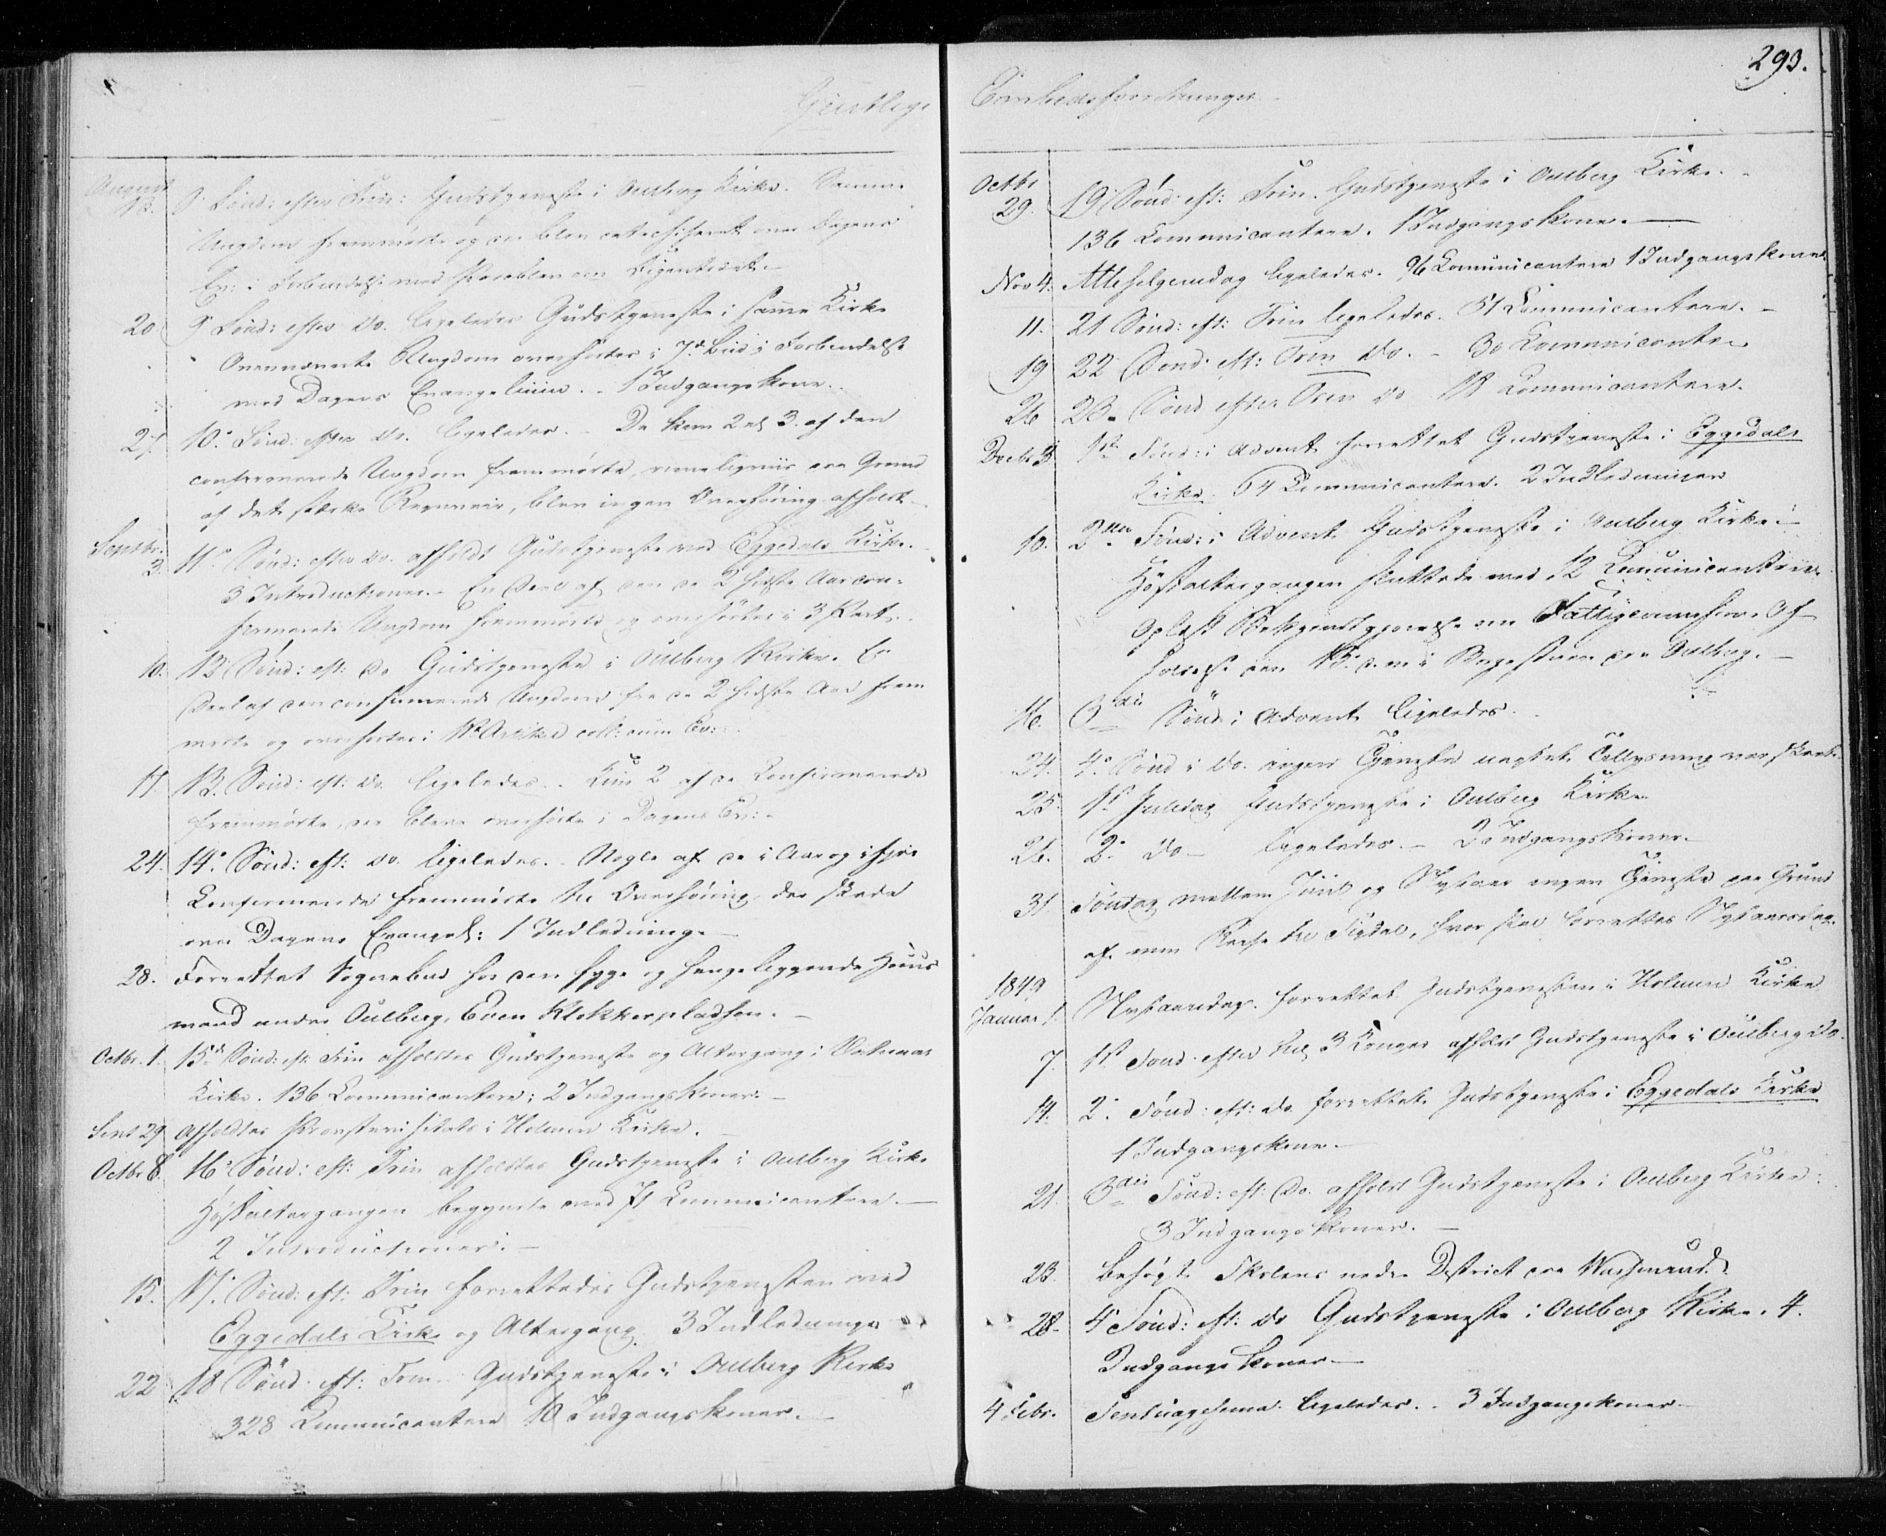 293.
Geistlige Embedsforretninger.
August
13. 8 Sönd: efter Trin: Gudstjeneste i Oulberg Kirke. Samme
Ungdom fremmödte og blev catechiseret over Dagens
Ev: i Forbindelse med
20 9 Sönd: efter do. ligeledes Gudstjeneste i samme Kirke
Ungdom overhörtes i 7de Bud i Forbindelse
med Dagens Evangelium. - 1 Indgangskone.
27. 10. Sönd: efter do. ligeledes. - Da kun 2 a 3 af den
confirmerede Ungdom fremmödte, rimeligviis paa Grund
af det stærke Regnveir, blev ingen Overhöring afholdt.
Septbr.
3. 11. Sönd: efter do. afholdt Gudstjeneste ved Eggedals Kirke.
3 Introductioner. - En Deel af den de 2 sidste Aar con-
firmerede Ungdom fremmödte og overhörtes i 3 Part.
10. 12 Sönd: eft: do Gudstjeneste i Oulberg Kirke. En
Deel af den confirmerede Ungdom fra de 2 sidste Aar frem
mödte og overhörtes i 1ste Artikel coll: cum Ev:
17. 13. Sönd: eft: do. ligeledes. - Kun 2 af de Confirmerede
fremmödte, der bleve overhörte i Dagens Ev: -
24. 14. Sönd: eft: do. ligeledes. - Nogle af de i Aar og ifjor
Confirmerede fremmödte til Overhöring, der skede
over Dagens Evangel: 1 Indledning.
28. Forrettet Sognebud hos den syge og sengeliggende Huus
mand under Oulberg, Even Klokkerpladsen. -
Octbr. 1. 15de Sönd: eft: Trin afholdtes Gudstjeneste og Altergang i
Kirke. 136 Communicantere; 2 Indgangskoner. -
Sept 29 Afholdtes Provstevisitats i Holmen Kirke.
Octbr 8. 16. Sönd: eft: Trin afholdtes Gudstjeneste i Oulberg Kirke
Höstaltergangen begyndte med 71 Communicantere. -
2 Introductioner. -
15. 17. Sönd: eft: Trin forrettedes Gudstjenesten ved
Eggedals Kirke og Altergang. 3 Indledninger
22 18 Sönd. eft: Trin Gudstjeneste i Oulberg Kirke
328 Communicantere 10 Indgangskoner. -
Octbr
29. 19 Sönd: eft: Trin. Gudstjeneste i Oulberg Kirke. -
136 Communicantere. 1 Indgangskone. -
Nov 4. Allehelgensdag ligeledes. 96 Communicantere 1 Indgangskone
11. 21 Sönd: eft: Trin ligeledes. 51 Communicantere. -
19 22 Sönd: eft: Trin do. - 30 Communicanter
26 23. Sönd efter Trin do 18 Communicantere.
Decbr 3 1ste Sönd: i Advent forrettet Gudstjeneste i Eggedals
Kirke. 64 Communicantere. 2 Indledninger
10. 2den Sönd: i Advent Gudstjeneste i Oulberg Kirke. -
Höstaltergangen sluttede med 12 Communicantere.
Oplæst Bekjendtgjörelse om
i Bygestuen paa Oulberg. -
16. 3die Sönd: i Advent ligeledes.
24. 4. Sönd i do. ingen Tjeneste uagtet Tillysning var skeet.
25. 1ste Juledag Gudstjeneste i Oulberg Kirke
26. 2. do - ligeledes. - 2 Indgangskoner. -
31. Söndag mellem Juul og Nytaar ingen Tjeneste paa Grund
af min Reise til Sigdal, hvor der forrettes Nytaarsdag.
1849
Januar 1. Nytaarsdag forrettet Gudstjenesten i Holmen Kirke
7. 1ste Sönd. efter hel. 3 Konger afholdt Gudstjeneste i Oulberg do.
14. 2. Sönd: eft: do. forrettet Gudstjeneste i Eggedals Kirke
1 Indgangskone. -
21. 3die Sönd: eft: do. afholdt Gudstjeneste i Oulberg Kirke.
3 Indgangskoner. -
23. Besögt Skolens nedre District paa
28. 4 Sönd: eft: do Gudstjeneste i Oulberg Kirke. 4.
Indgangskoner -
4 Febr. Septuagesima ligeledes. - 3 Indgangskoner